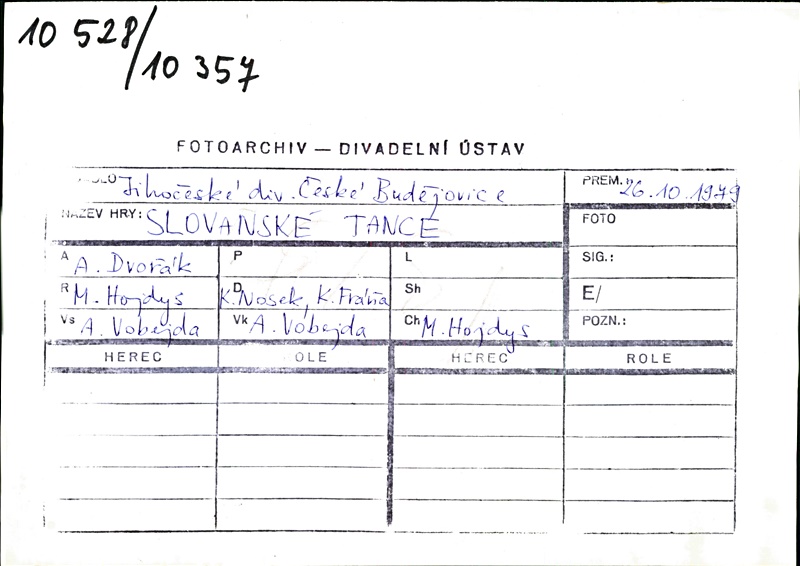 10 528/
10 357
FOTOARCHIV — DIVADELNÍ ÚSTAV
Jihočeské div. České Budějovice
PREM. 26.10.1979
NÁZEV HRY: SLOVANSKÉ TANCE
FOTO
A A. Dvořák P L SIG.:
R M. Hojdys D K. Nosek, K. Fráňa Sh E/
Vs A. Vobejda Vk A. Vobejda Ch M. Hojdys POZN.:
HEREC ROLE HEREC ROLE